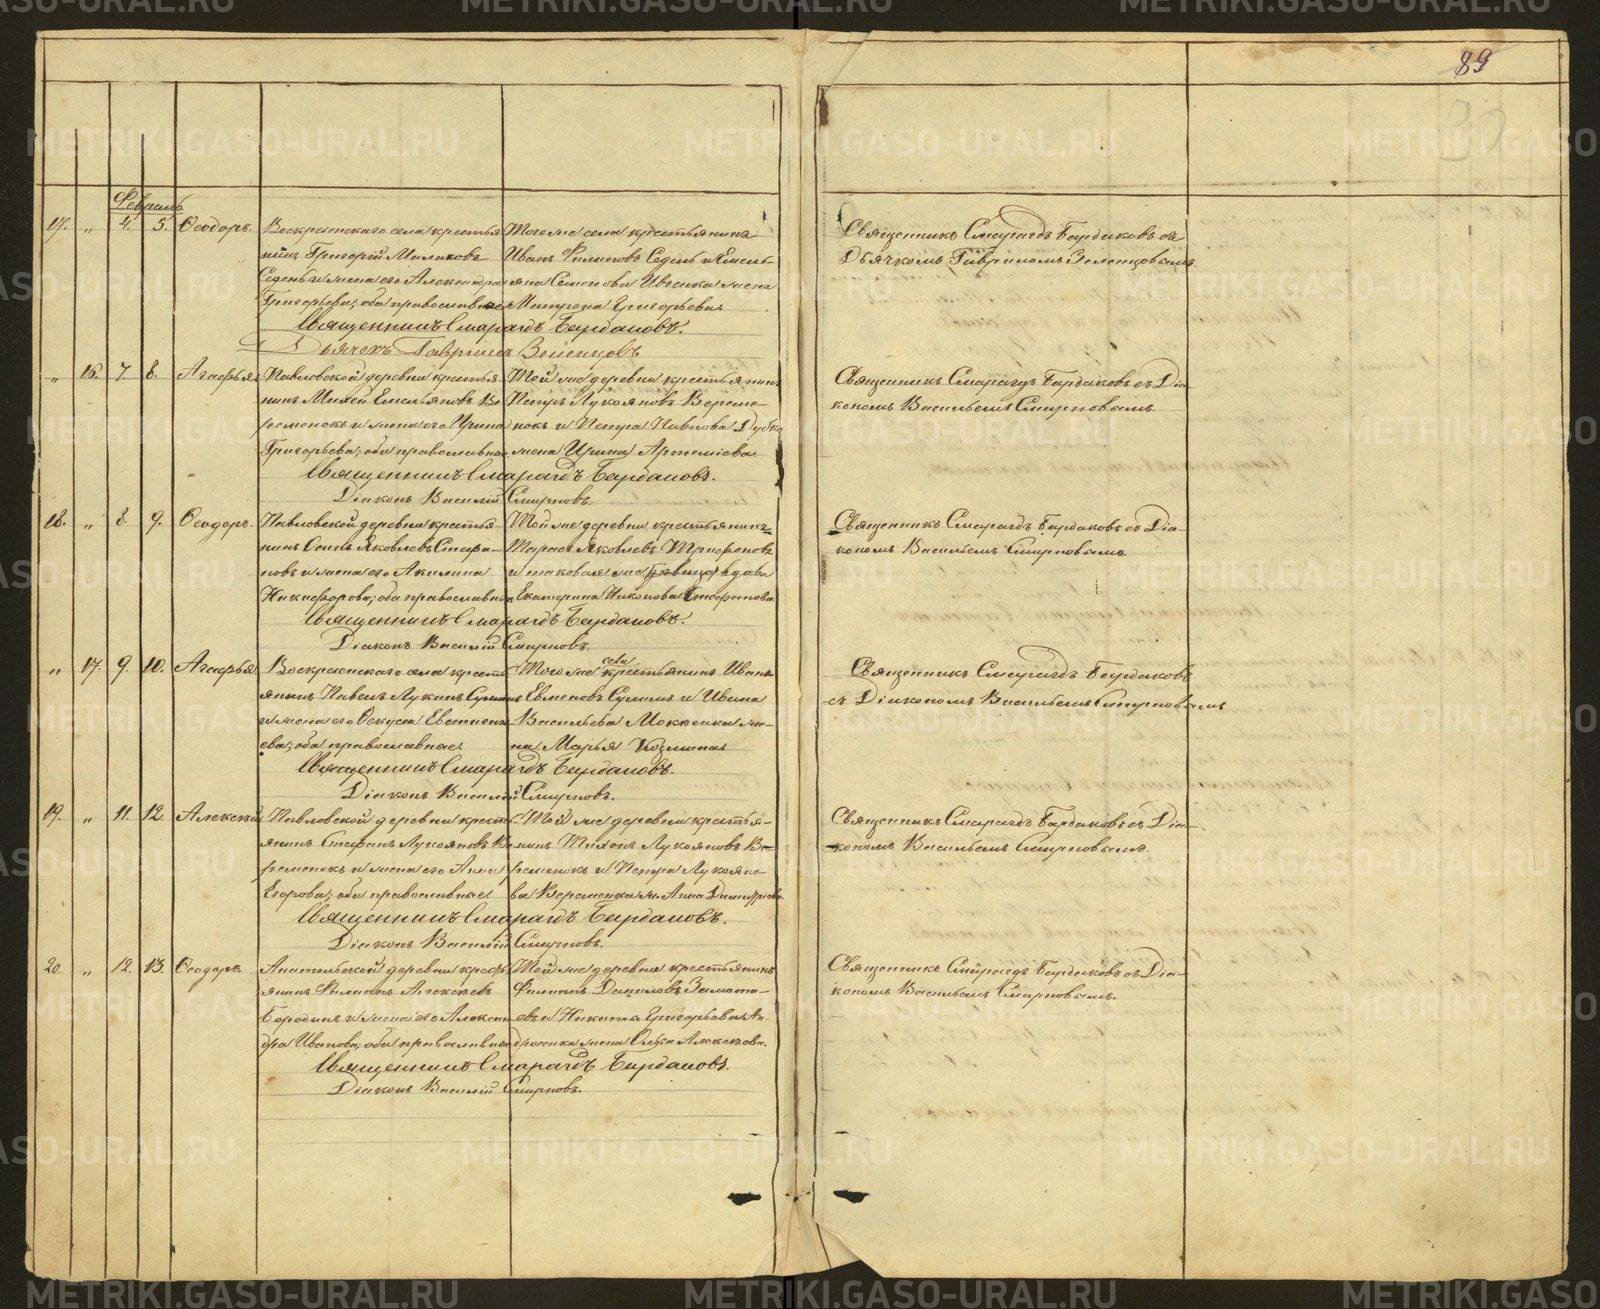 METRIKI.GASO-URAL.RU
89
30
Февраль
17. „ 4. 5. Ѳеодоръ.
Воскресенскаго села крестья-
нинъ Григорій Маликовъ
и жена его Александра
Григорьева, оба православные
Того же села крестьянинъ
Иванъ Филиповъ Седень и Емель-
яна Семенова Ивченка жена
Матрона Григорьева
Священникъ Смарагдъ Бардаковъ.
Дьячекъ Гавріилъ
Священникъ Смарагдъ Бардаковъ съ
Дьячкомъ Гавріиломъ
„ 16. 7 8. Агафья
Павловской деревни крестья-
нинъ Михей Емельяновъ Ве-
ременокъ и жена его Ирина
Григорьева, оба православные
Той же деревни крестьянинъ
Петръ Лукояновъ Вереме-
нокъ и Петра Павлова Дубка
жена Ирина Артеміева
Священникъ Смарагдъ Бардаковъ.
Діаконъ Василій Смирновъ.
Священникъ Смарагдъ Бардаковъ съ Діа-
кономъ Васильемъ Смирновымъ.
18. „ 8. 9. Ѳеодоръ.
Павловской деревни крестья-
нинъ Осипъ Яковлевъ Стефа-
новъ и жена его Акилина
Никифорова, оба православные
Той же деревни крестьянинъ
Тарасъ Яковлевъ Трифоновъ
и таковая же вдова
Екатерина Никонова Стефанова
Священникъ Смарагдъ Бардаковъ.
Діаконъ Василій Смирновъ.
Священникъ Смарагдъ Бардаковъ съ Діа-
кономъ Васильемъ Смирновымъ.
„ 17. 9. 10. Агафья
Воскресенскаго села кресть-
янинъ Павелъ Лукинъ
и жена его Ѳекуса Евстигне-
ева, оба православные.
Того же села крестьянинъ Иванъ
Евменовъ и Ивана
Васильева же-
на Марья Козмина
Священникъ Смарагдъ Бардаковъ.
Діаконъ Василій Смирновъ.
Священникъ Смарагдъ Бардаковъ
съ Діакономъ Васильемъ Смирновымъ
19. „ 11. 12. Алексѣй
Павловской деревни кресть-
янинъ Стефанъ Лукояновъ Ве-
ременокъ и жена его Анна
Егорова, оба православные.
Той же деревни крестья-
нинъ Тихонъ Лукояновъ Ве-
ременокъ и Петра Лукояно-
ва Веременка ж. Анна Димитріева
Священникъ Смарагдъ Бардаковъ.
Діаконъ Василій Смирновъ.
Священникъ Смарагдъ Бардаковъ съ Діа-
кономъ Васильемъ Смирновымъ.
20. „ 12. 13. Ѳеодоръ.
Анатольской деревни кресть-
янинъ Филипъ Алексѣевъ
Бородинъ и жена его Алексан-
дра Иванова, оба православные
Той же деревни крестьянинъ
Филиппъ Даниловъ Замота-
евъ и Никиты Григорьева Ан-
дросика жена Ольга Алексѣева.
Священникъ Смарагдъ Бардаковъ.
Діаконъ Василій Смирновъ.
Священникъ Смарагдъ Бардаковъ съ Діа-
кономъ Васильемъ Смирновымъ.